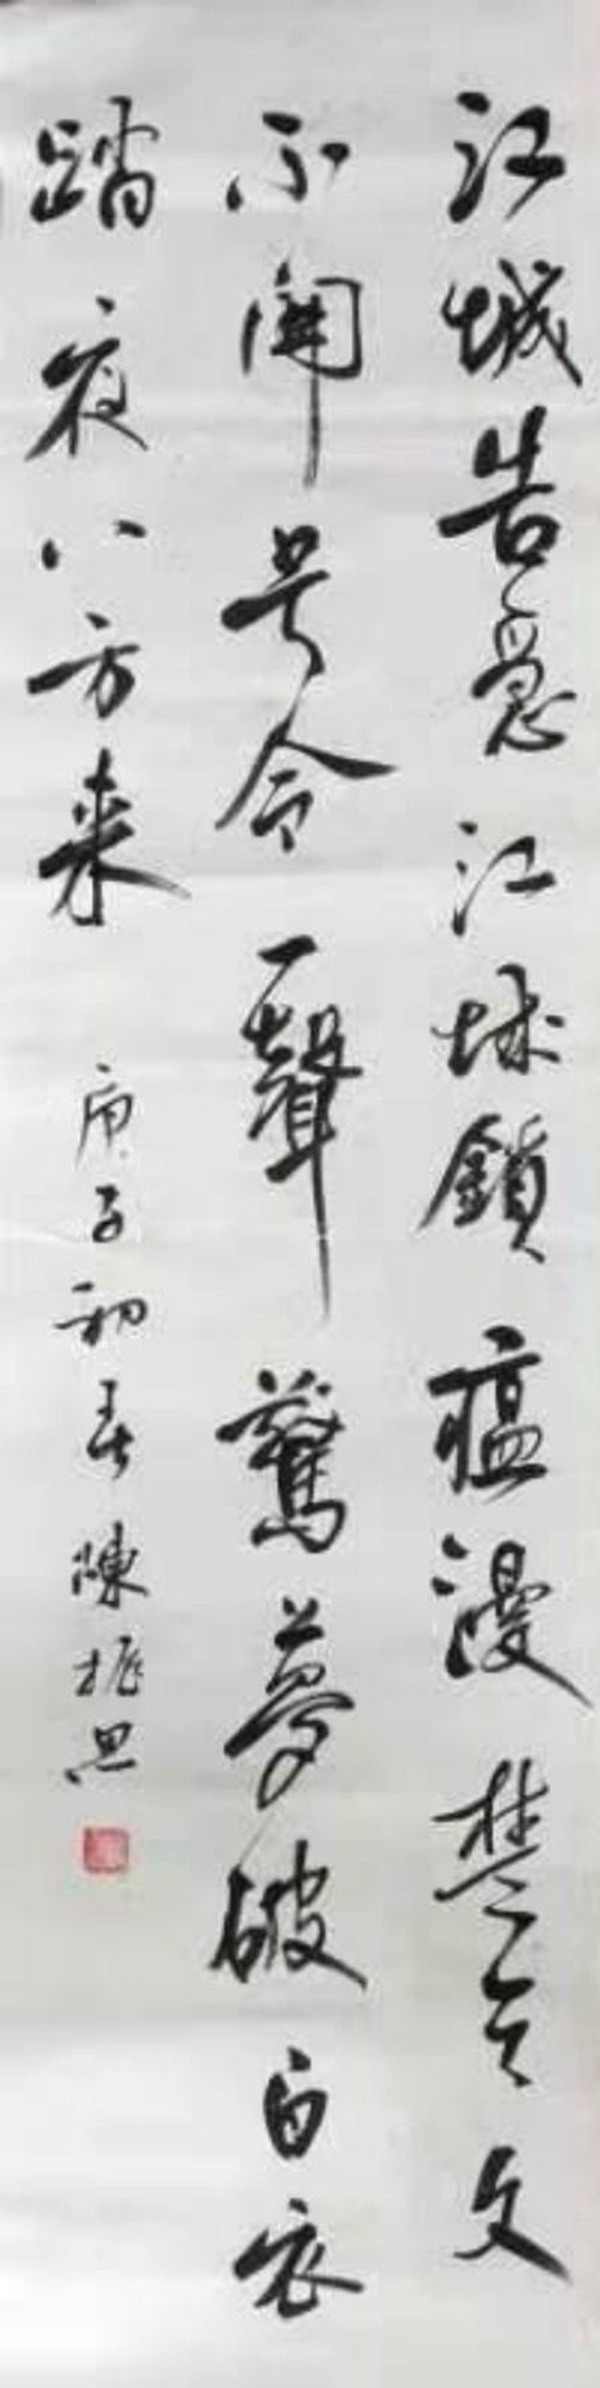 江城告急江城鎖瘟漫楚天文
不開号令一聲驚夢破白衣
踏夜八方來
庚子初春陳振思